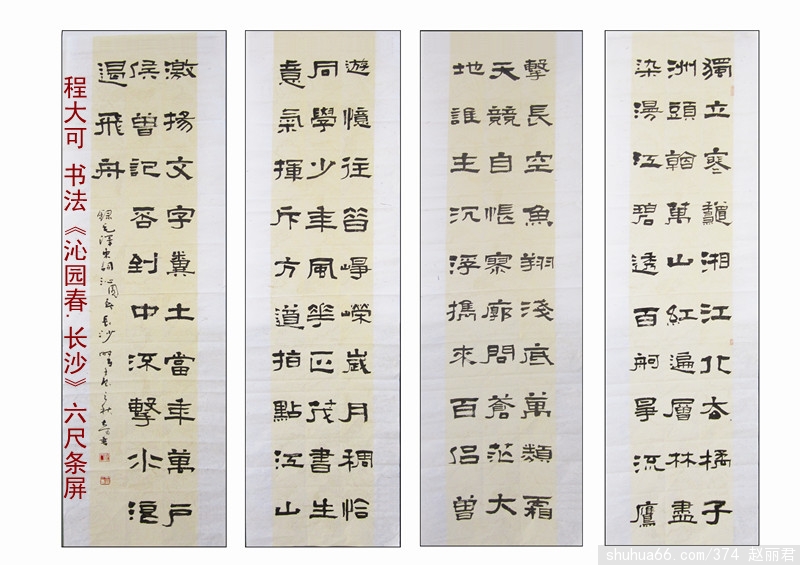 獨立寒龝湘江北去橘子
洲頭看萬山紅遍層林盡
染漫江碧透百舸爭流鷹
擊長空魚翔淺底萬類霜
天競自悵寥廓問蒼茫大
地誰主沉浮攜來百侶曾
遊憶往昔崢嶸歲月稠恰
同學少年風華正茂書生
意氣揮斥方遒指點江山
激揚文字糞土當年萬户
侯曾記否到中流擊水浪
遏飛舟
錄毛澤東詞沁園春長沙
程大可 书法《沁园春·长沙》六尺条屏
shuhua66.com/374 赵丽君